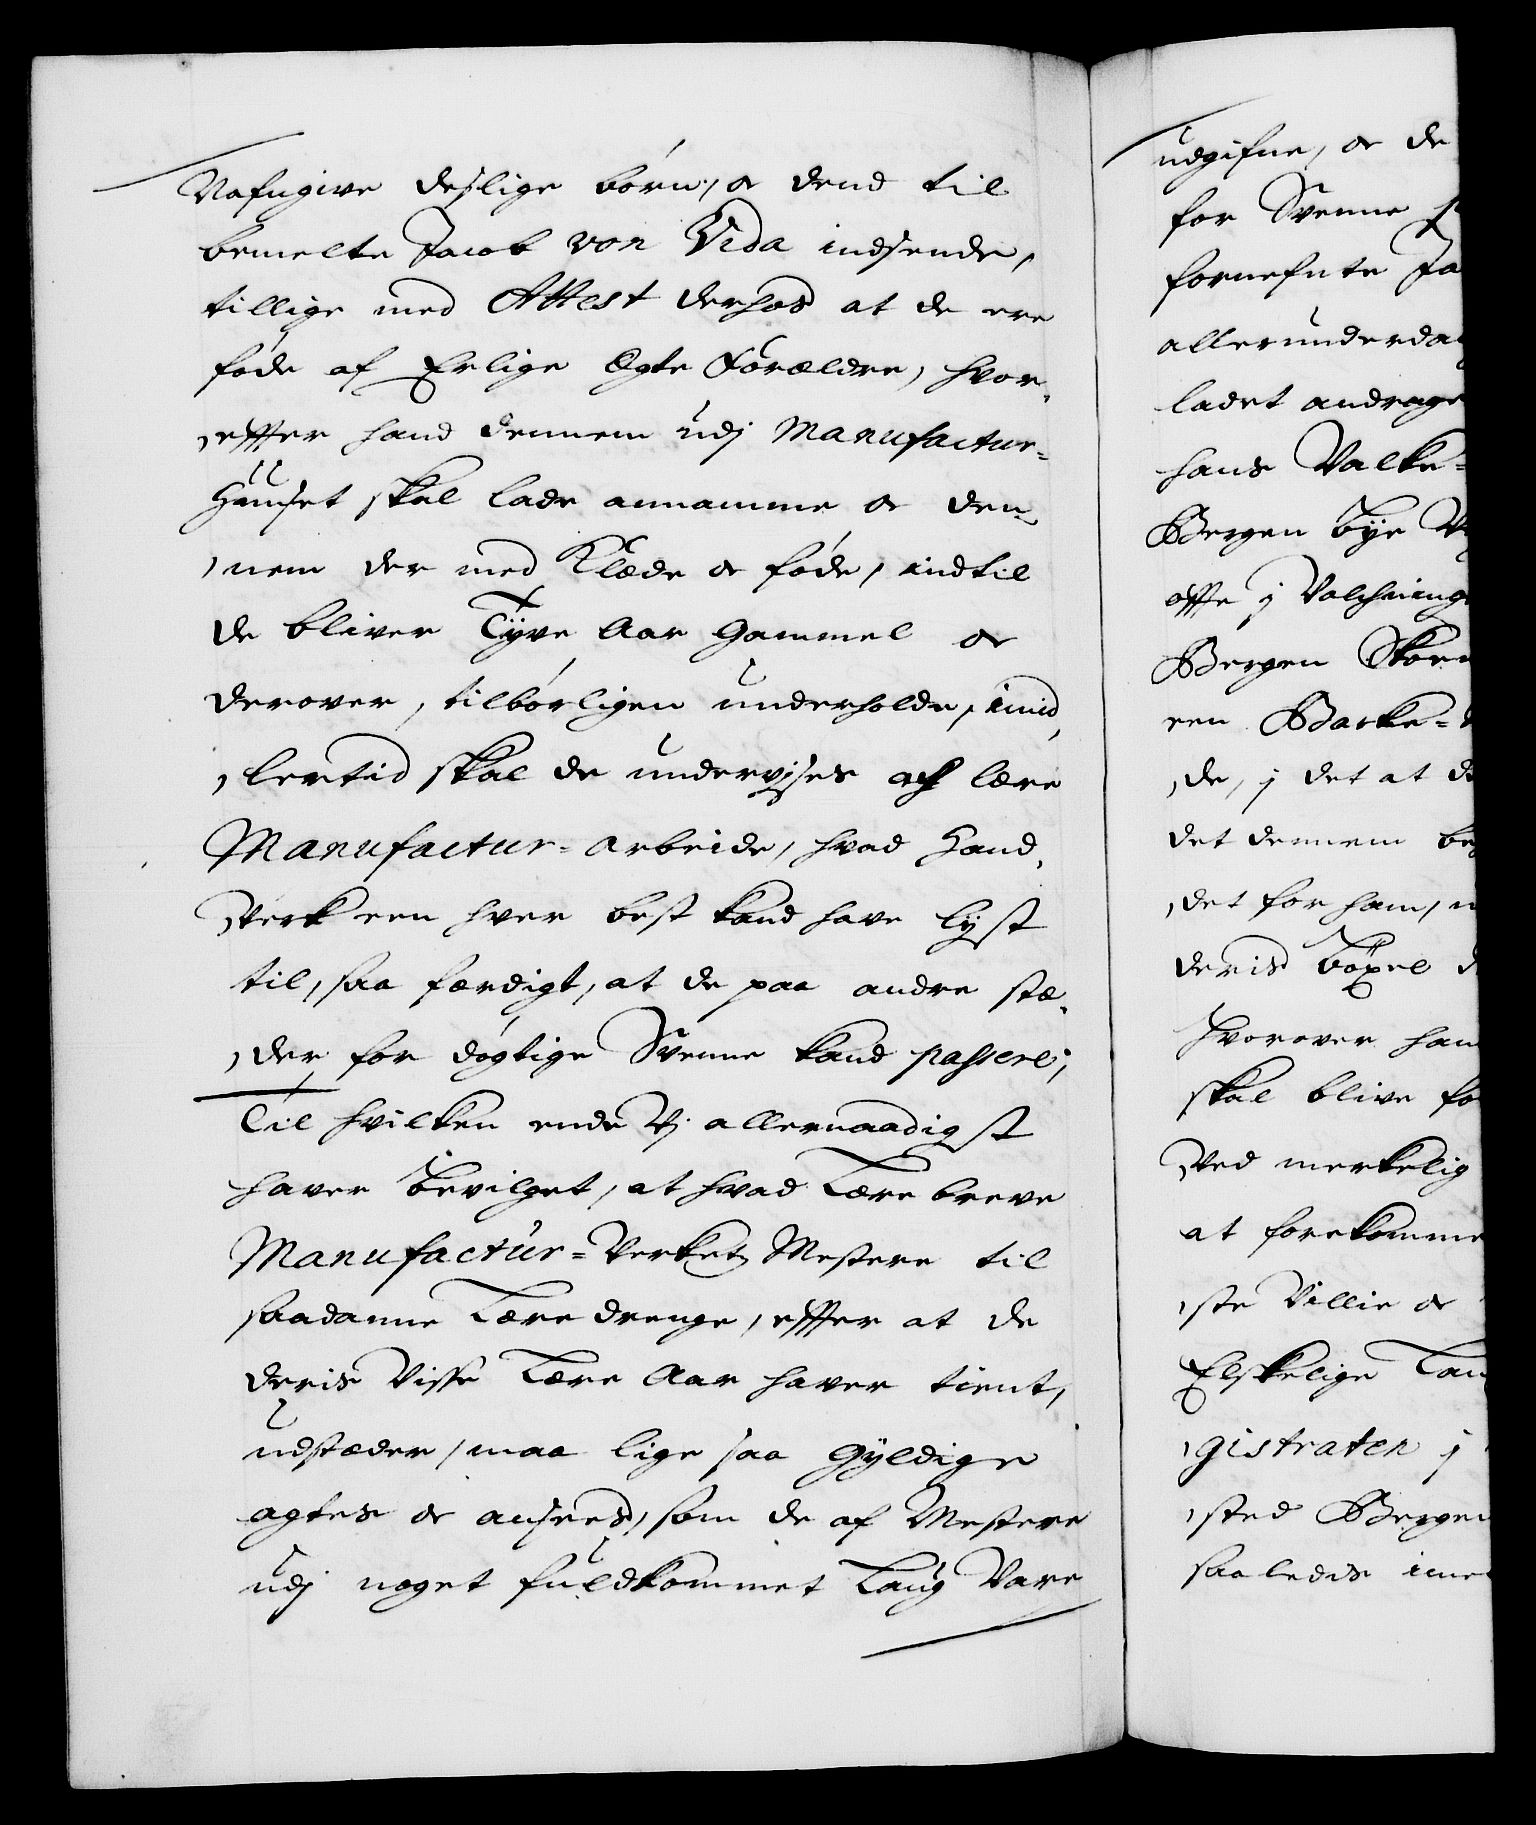 Nafngive deslige börn, oc dend til
bemelte Jacob von Vida indsende,
tillige med Attest derhos at de ere
föde af Erlige Ægte Forældre, hvor¬
effter hand dennem udj Manufactur-
Huuset skal lade annamme oc den¬
nem der med Klæde oc föde, indtil
de bliver Tyve Aar Gammel oc
derover, tilbörligen underholde, imid¬
lertid skal de undervjses at lære
Manufactur-arbeide, hvad Hand¬
verk een hver best kand have lyst
til, saa færdigt, at de paa andre stæ¬
der for dögtige Svenne kand passere;
Til hvilken ende Vj allernaadigst
haver bevilget, at hvad Lære breve
Manufactur-Verkets Mestere til
saadanne Lære drenge, effter at de
deris Visse Lære Aar haver tient,
udstæder, maa lige saa Gyldige
agtes oc ansees, som de af Mestere
udj noget fuldkommet Laug Vare
udgifne, oc de
for Svenne
fornefnte Ja
allerunderda
ladet andrage
hans Valke-
Bergen bye
offte j Valchning
Bergen
een Barke-
de, j det at
det dennem be
det for ham,
deris
hvorover han
skal blive fo
Ved merkelig
at forekomme
ste Villie oc
Elskelige Lau
gistraten j
sted Bergen
saaledis ime